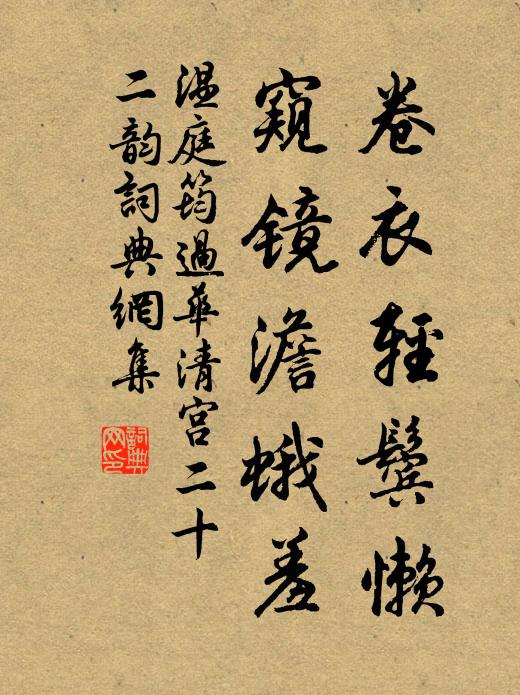 卷衣輕鬢懶
窺镜澹蛾羞
溫庭筠過華清宮二十
二韵詞典網集
詞典
网印